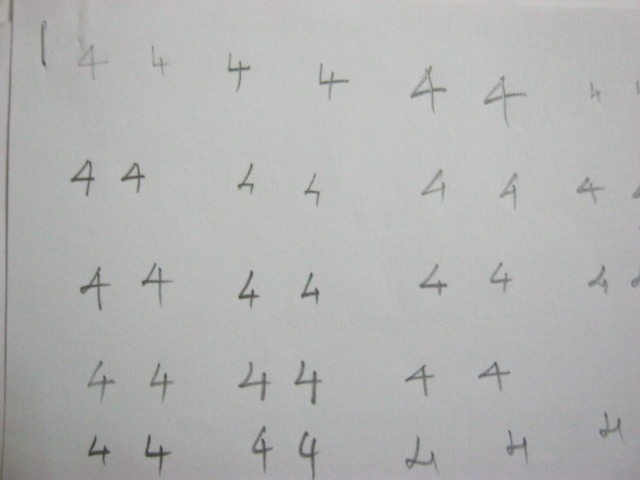 4 4 4 4 4 4 4
4 4 4 4 4 4 4
4 4 4 4 4 4 4
4 4 4 4 4 4
4 4 4 4 4 4 4